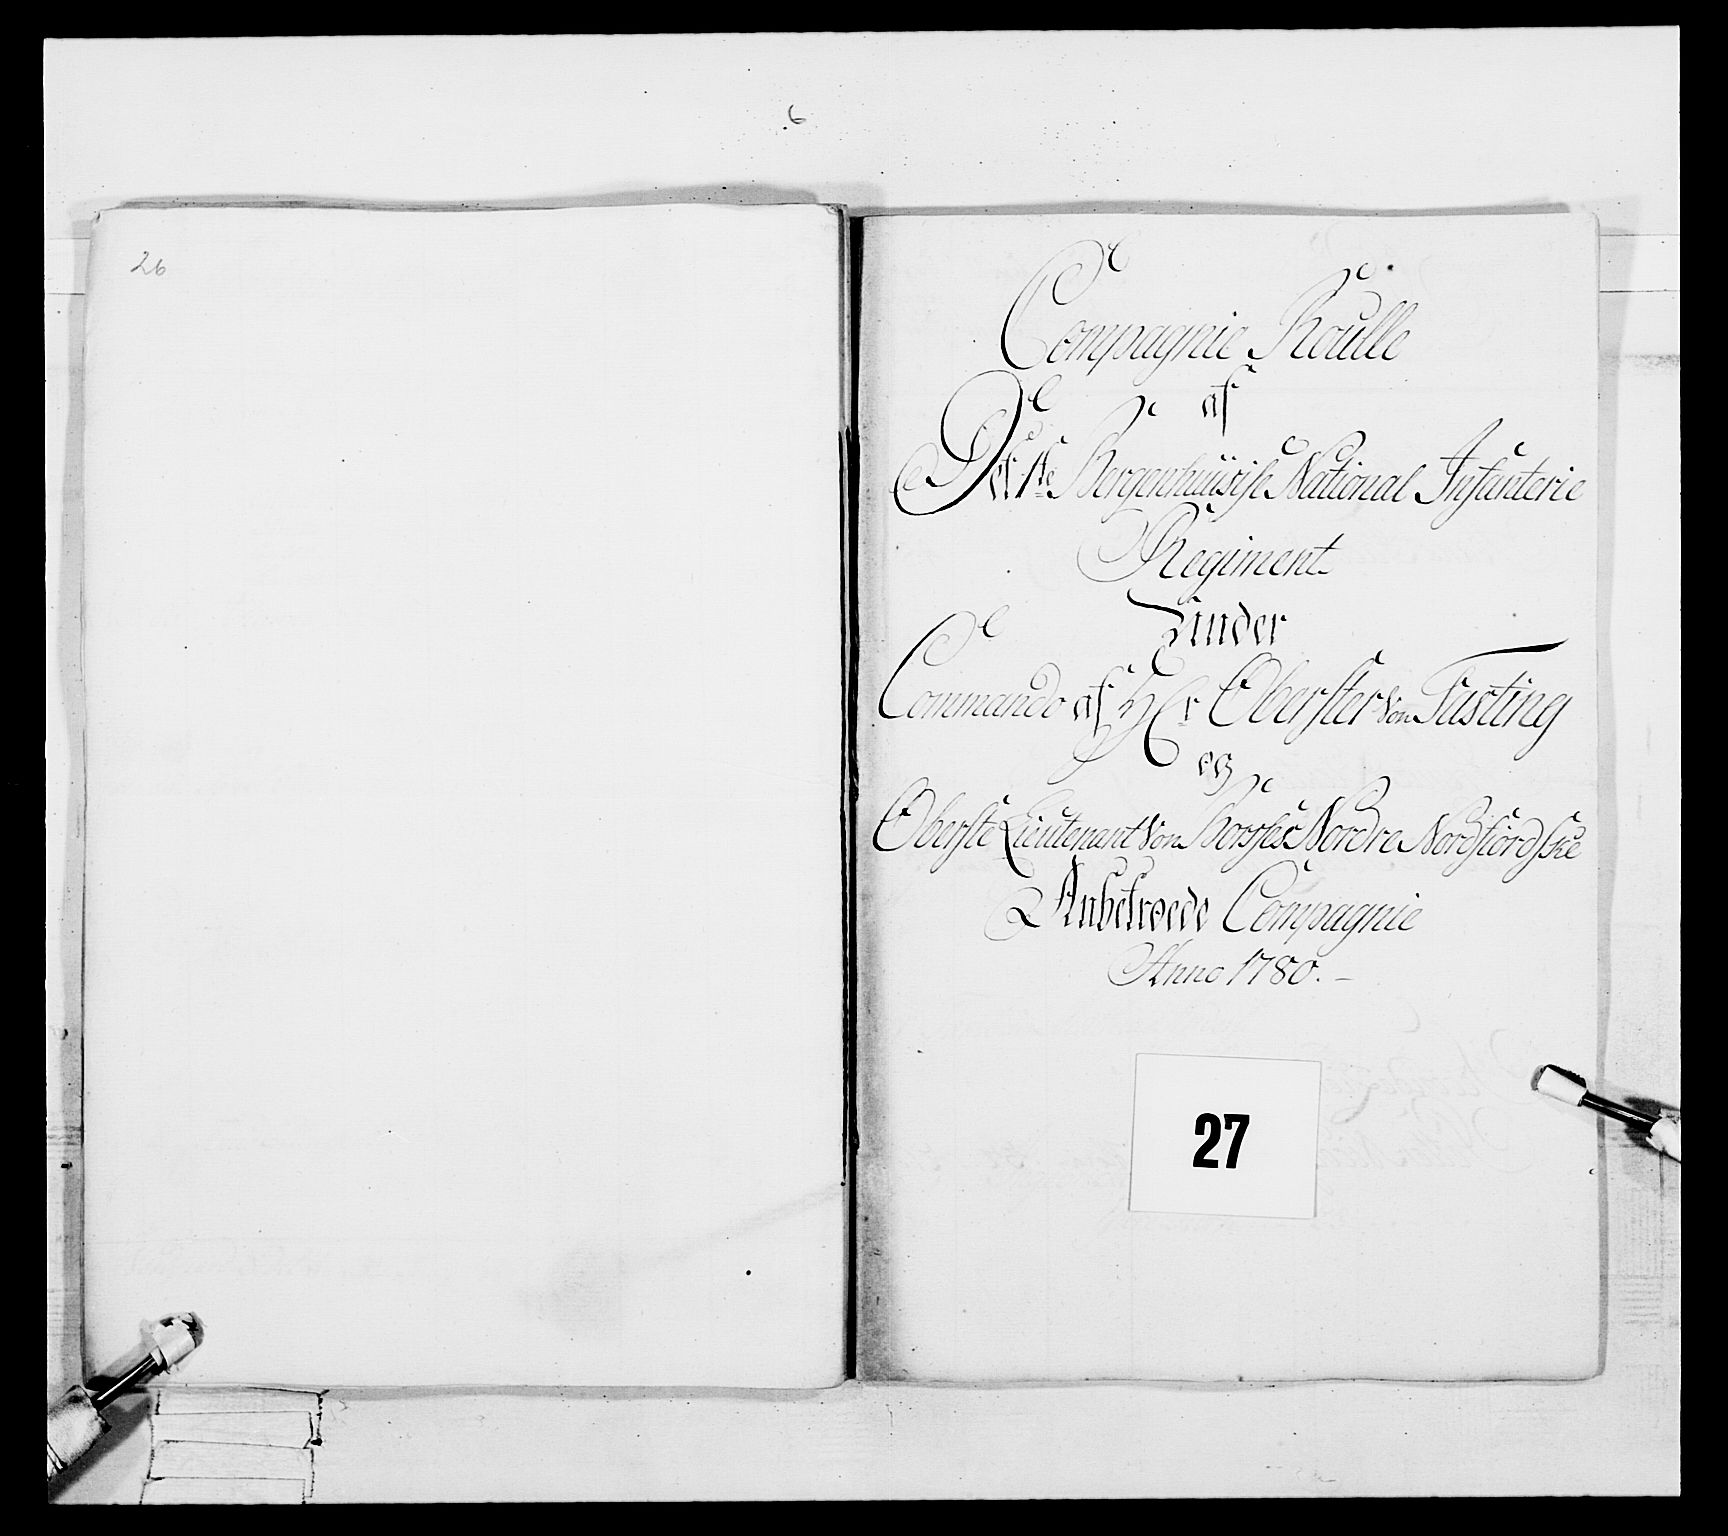 6
26
Compagnie Roulle
af
Det 1te Bergenhuusiſe National Infanterie
Regiment
Under
Commando af Hr Oberster von Fasting
og
Oberste Lieutenant von Nordre Nordfiordske
Anbetroede Compagnie
Anno 1780. -
27